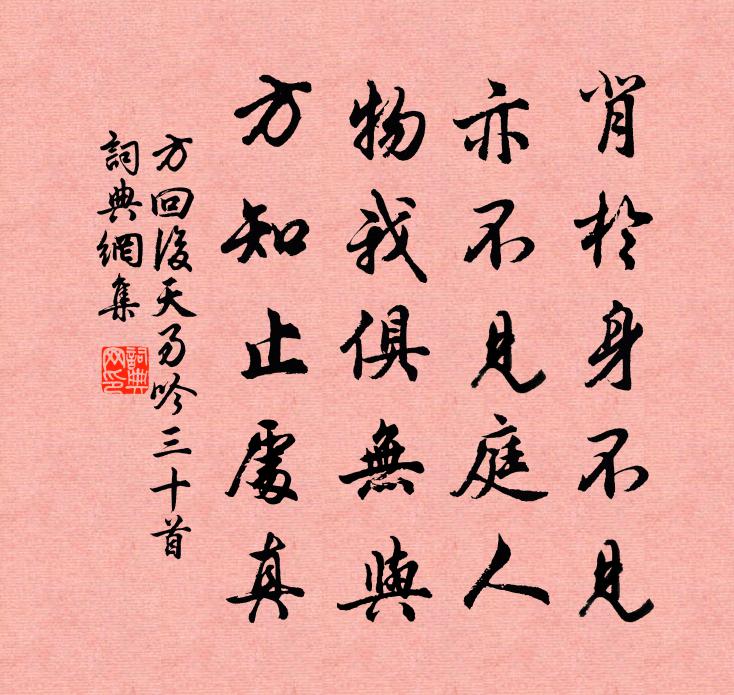 肖於身不見
亦不見庭人
物我俱無與
方知止處真
方回後天易吟三十首
詞典網集
詞典網印